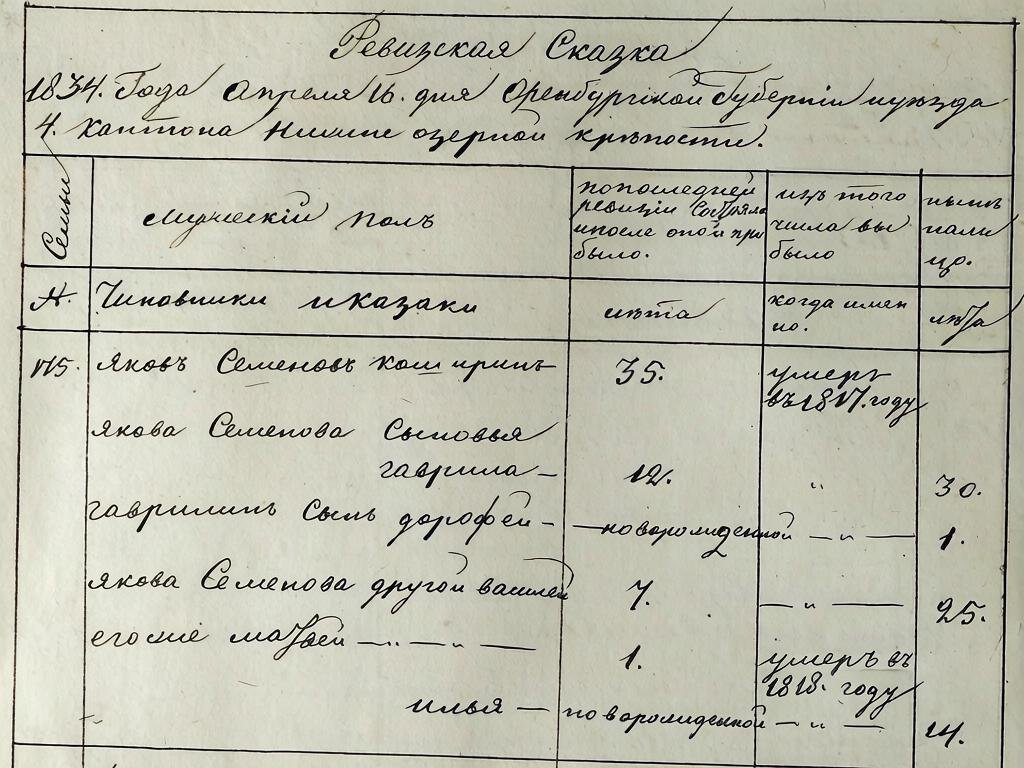 Ревизская Сказка
1834. Года Апреля 16. дня Оренбургской Губернiи иуезда
4. кантона Нижне озерной крѣпости.
Семьи
Мужескiй полъ
попоследней
ревизiи Состояло
ипосле оной при
было.
изъ того
числа вы
было
нынѣ
нали
цо.
Чиновники иказаки
лѣта
когда имен
но.
лѣта
175. яковъ Семеновъ каширинъ 35. умеръ
въ 1817. году
якова Семенова Сыновья
гаврила — 12. " 30.
гаврилинъ сынъ дорофей — новорожденной — " — 1.
якова Семенова другой василей 7. — " — 25.
егоже матвей — " — " — 1. умеръ въ
1818. году
илья — новорожденной — " — 14.